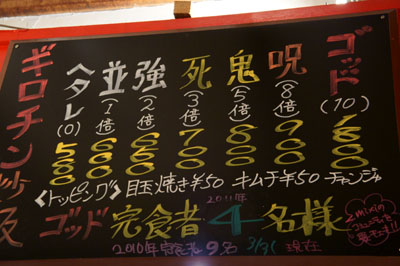 ギロチン炒飯
ヘタレ(0) 500
並(1倍) 500
強(2倍) 600
死(3倍) 700
鬼(5倍) 800
呪(8倍) 900
ゴッド(10) 1000
<トッピング> 目玉焼き¥50 キムチ¥50 チャンジャ
ゴッド 完食者 2011年 4名様
2010年完食者9名 3/31 現在
mixiコミュニティ